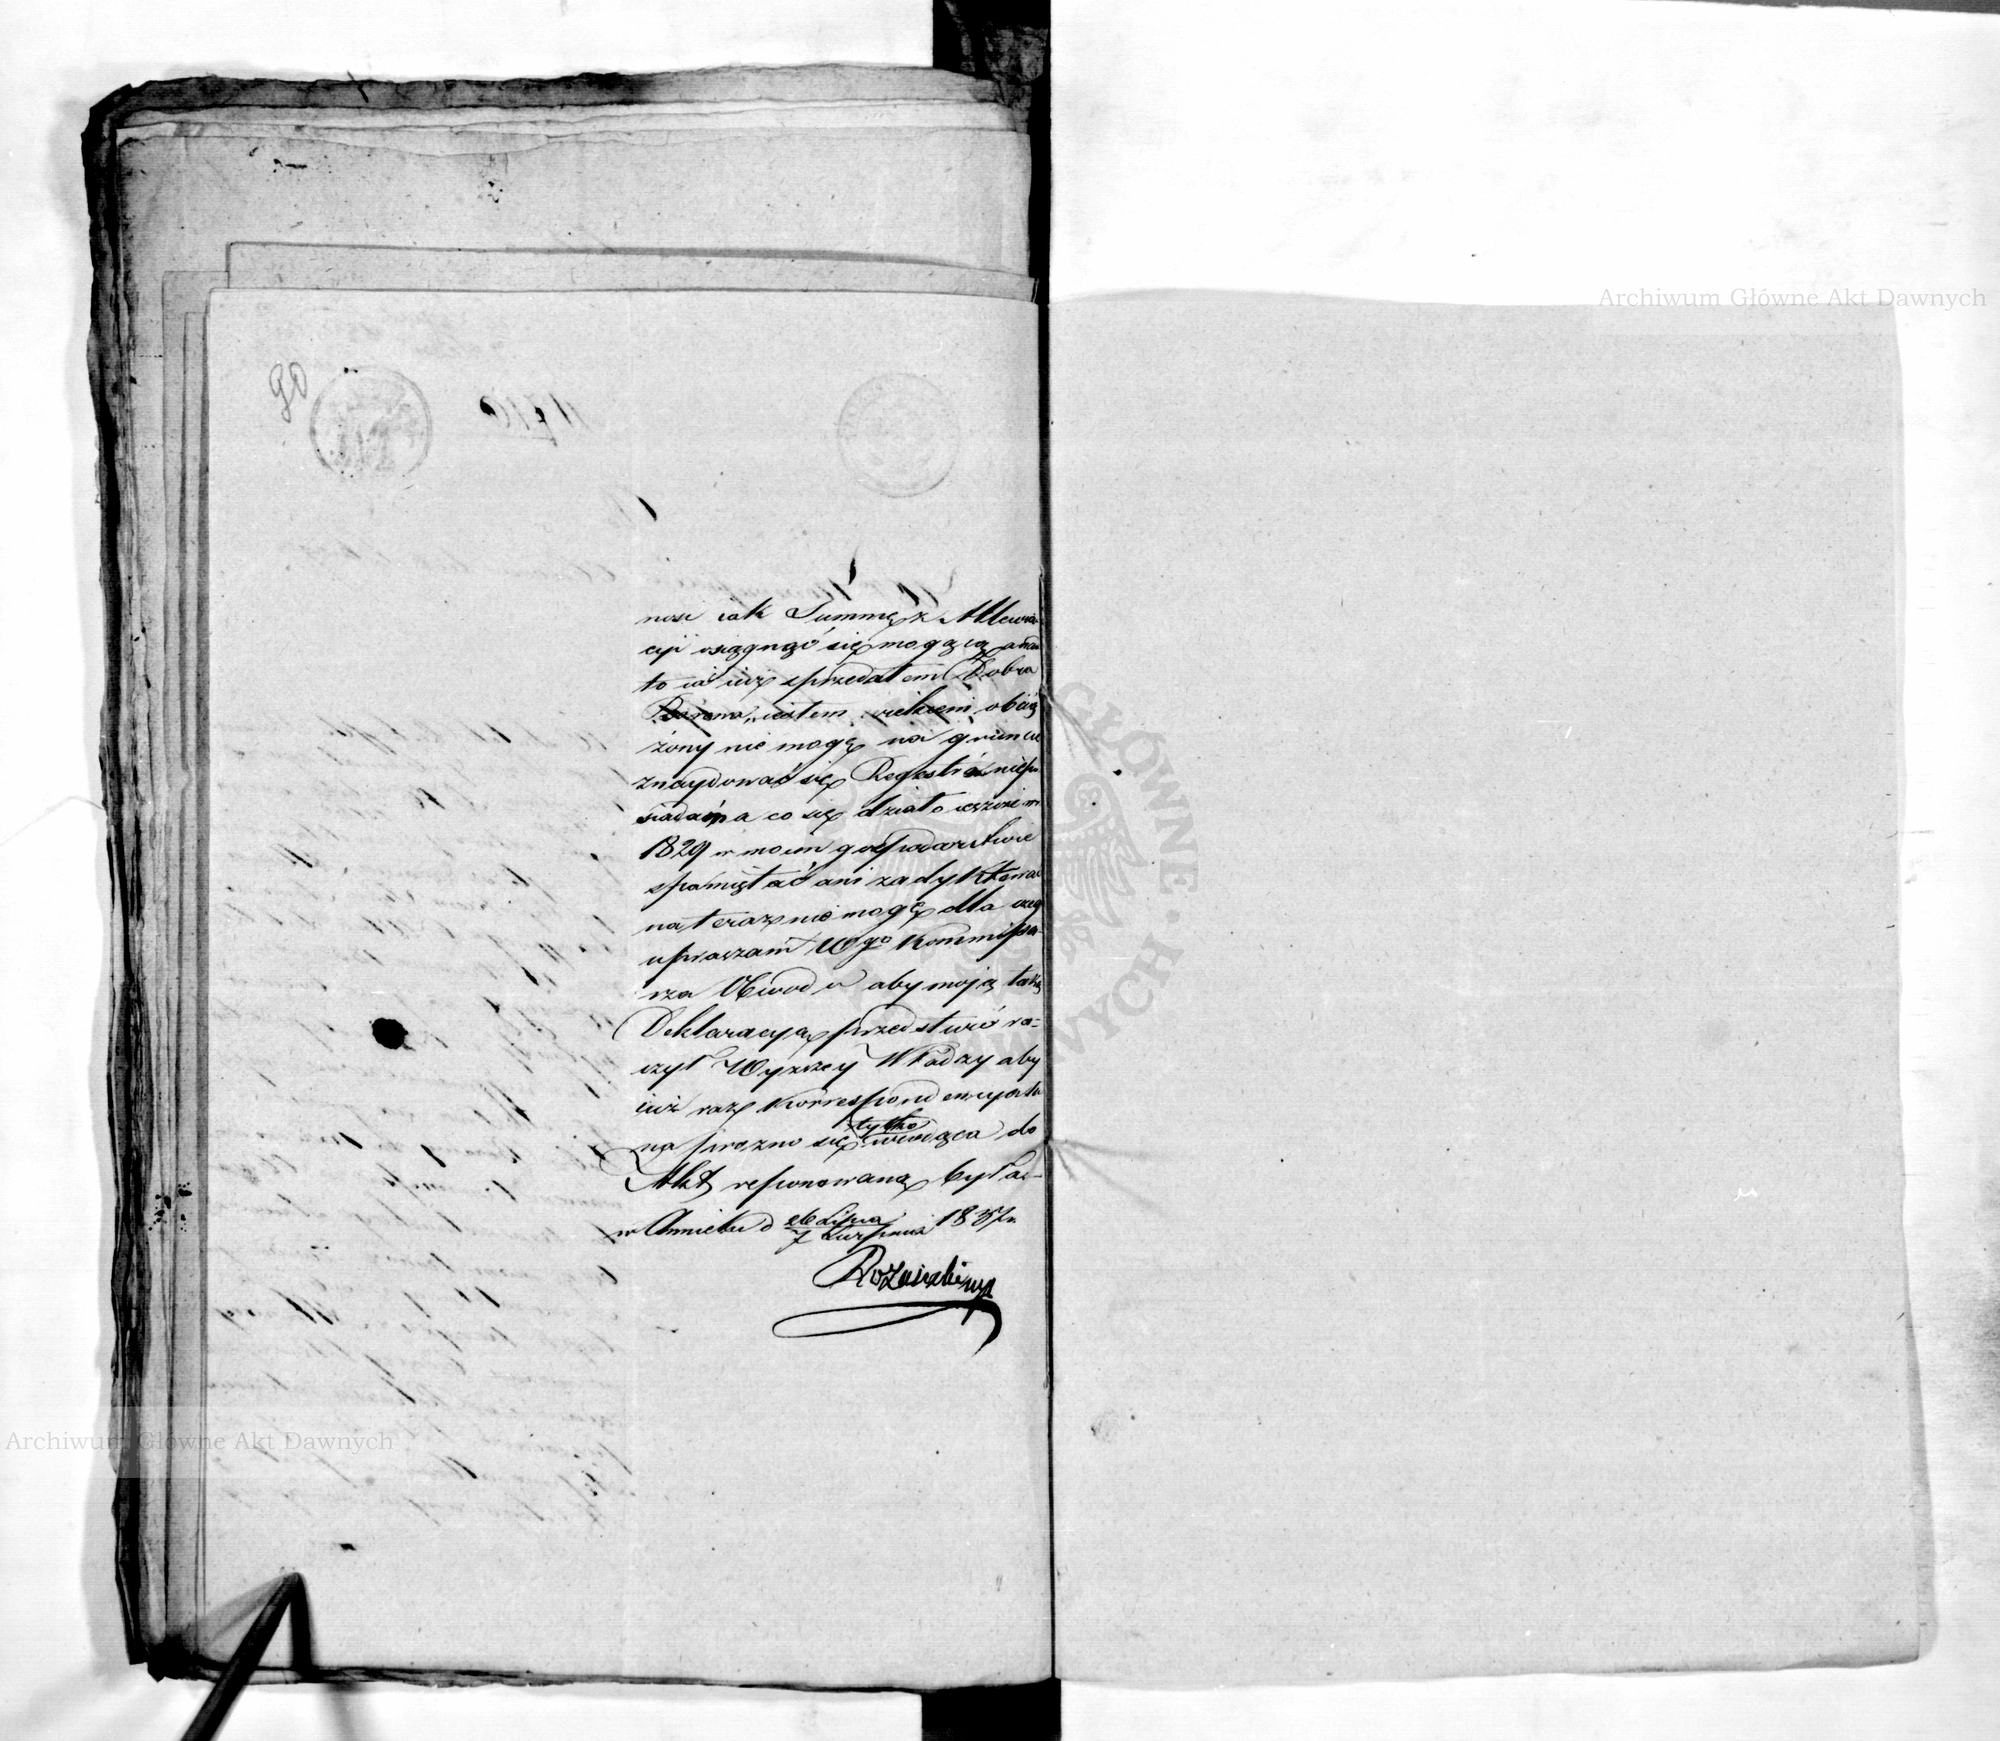 Archiwum Główne Akt Dawnych
nosi iak Summę z Allewia-
cyi osiągnąć się mogącą a nad
to iá iuż sprzedałem Dobra
iestem wiekiem obcią
żony nie mogę na gruncie
znaydować się Regestrá niepo
siadam a co się działo ieszcze w
1829 w moim gospodarstwie
spamiętać ani zadyktować
na teraz nie mogę dla czego
upraszam Wgo Kommissa-
rza Obwodu aby moją taką
Deklaracyą przedstawić ra-
czył Wyzszey Władzy aby
iuż raz Korrespondencya ta
na prozno się tylko wiodąca do
Akt reponowaną była-
w d 26 Lipca
7 Sierpnia 1837 r.
GŁÓWNE
Archiwum Główne Akt Dawnych